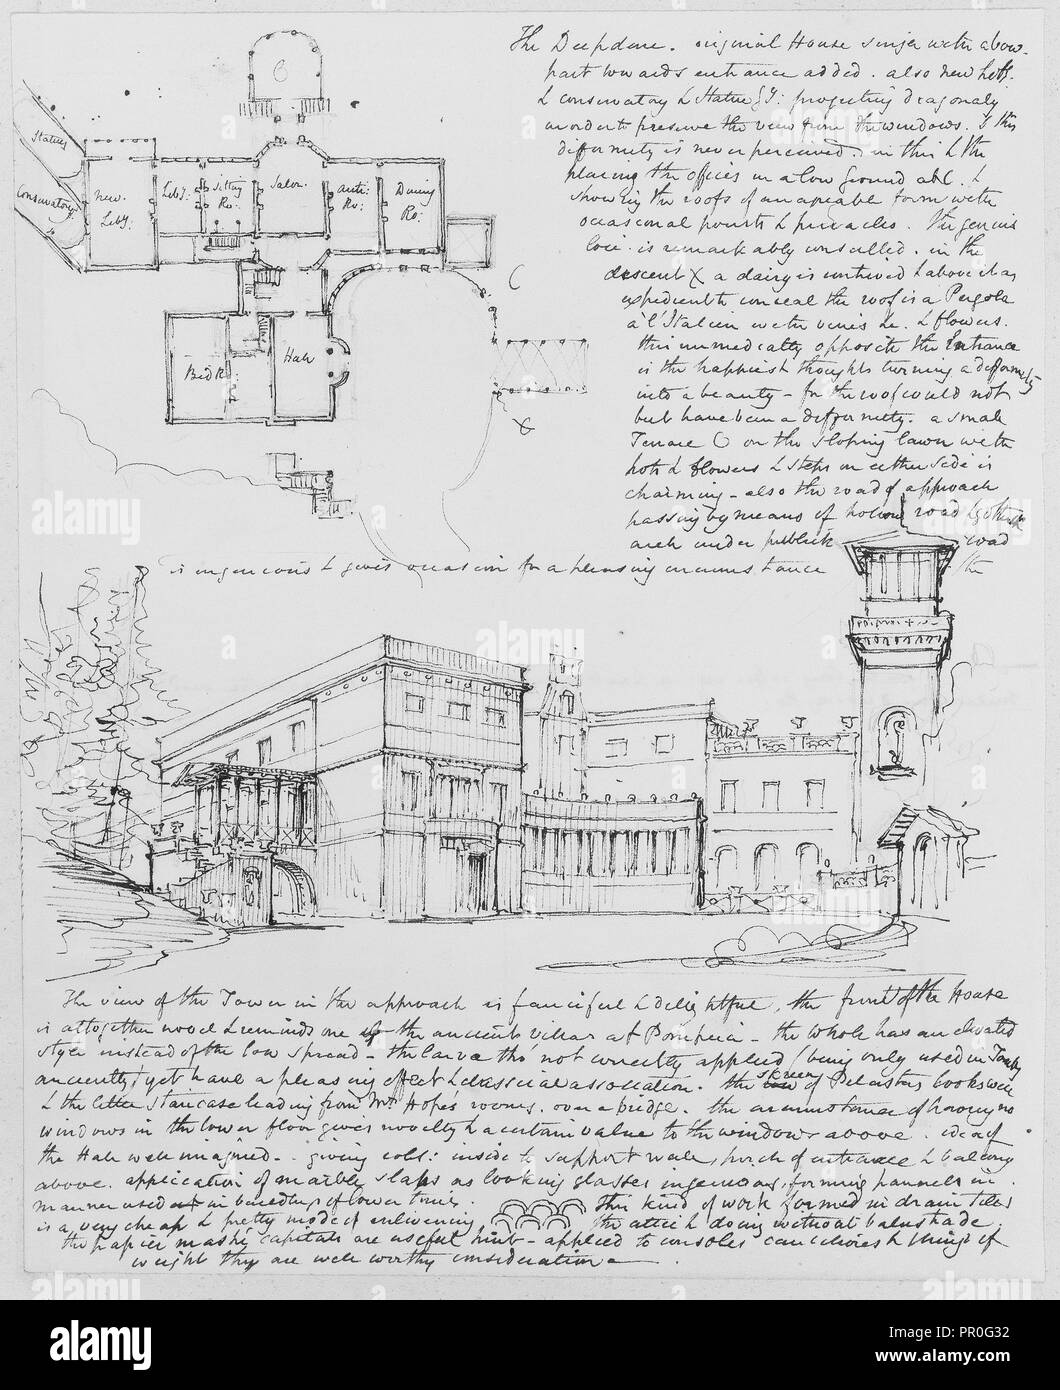 The Deepdene. original House single with a bow.
part towards entrance added. also new
& conservatory & Statue Gy: projecting diagonaly
in order to preserve the view from the windows. & this
difformity is never perceived. in this & the
placing the offices in a low ground &
showing the roofs of an agreable form with
occasional points & pinacles. The genius
loci is remarkably consulted. in the
descent X a dairy is contrived & above it as
expedient to conceal the roof is a Pergola
à l'Italien with vines &c. & flowers.
this immediatly opposite the Entrance
is the happiest thought turning a difformity
into a beauty - for the roof could not
but have been a difformity. a small
Terrace O on the sloping lawn with
pots & flowers & steps on either side is
charming - also the road of approach
passing by means of hollow road &
arch under publick road
is ingenious & gives occasion for a pleasing circumstance the
Statues
Conservatory
New Liby:
Liby:
Sitting Ro:
Salon.
Anti: Ro:
Dining Ro:
Bed Ro:
Hall
C
X
The view of the Tower in the approach is fanciful & delightful, the front of the House
is altogether novel & reminds one of the ancient villas at Pompeia - the whole has an elevated
style instead of the low spread - the larva tho not correctly applied (being only used in Tombs
anciently) yet have a pleasing effect & classical association. the skreen of Pelasters looks well
& the little staircase leading from Mr Hope's rooms. over a bridge. the circumstance of having no
windows in the lower floor gives novelty & a certain value to the windows above. idea of
the Hall well imagined - giving cols: inside to support wall, porch of entrance & balcony
above. application of marble slabs as looking glasses ingenious, forming pannels in
manner used in of lower
is a very cheap & pretty mode of enlivening this kind of work formed in drain tiles
the attick & doing without balustrade.
the papier maché capitals are useful hint - applied to consoles & things of
weight they are well worthy consideration
alamy
a
Image ID: PR0G32
www.alamy.com